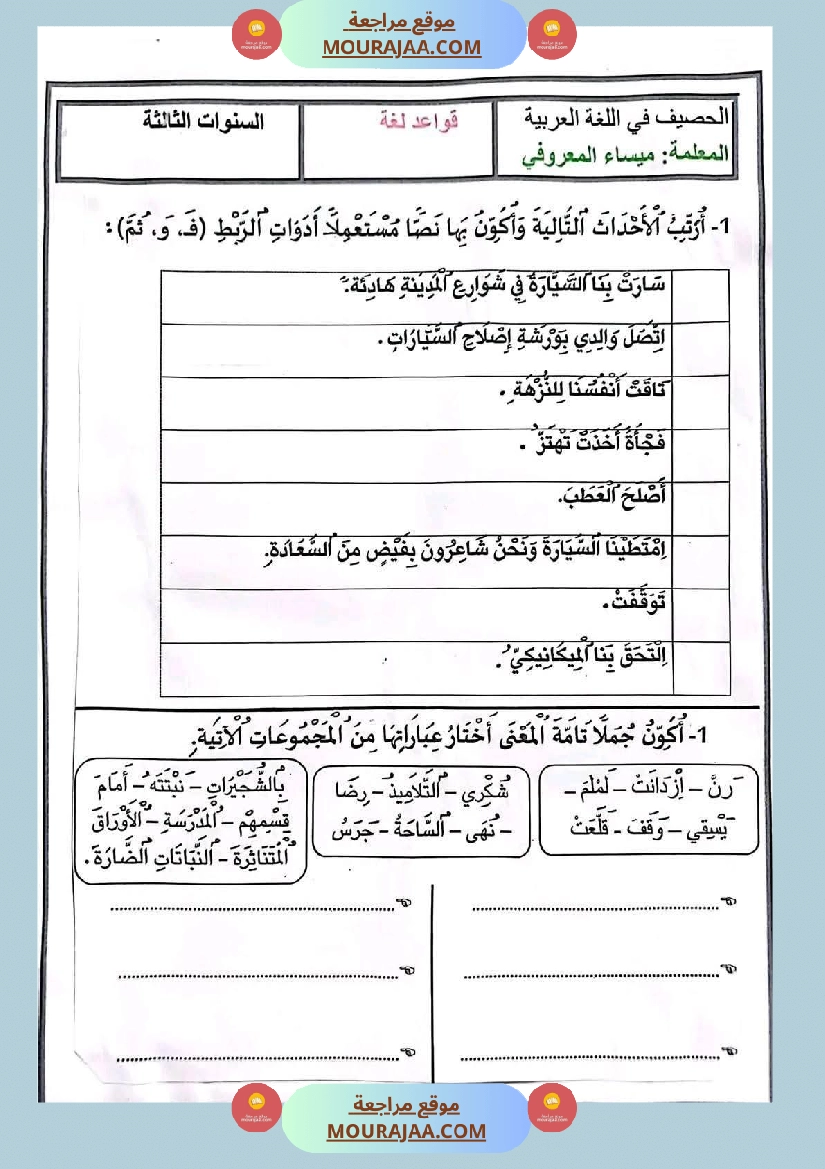 موقع مراجعة
MOURAJAA.COM
الحصيف في اللغة العربية
المعلمة: ميساء المعروفي
قواعد لغة
السنوات الثالثة
1- أُرَتِّبُ الْأَحْدَاثَ التَّالِيَةَ وَأُكَوِّنُ بِهَا نَصًّا مُسْتَعْمِلًا أَدَوَاتِ الرَّبْطِ (فَـ، وَ، ثُمَّ) :
سَارَتْ بِنَا السَّيَّارَةُ فِي شَوَارِعِ الْمَدِينَةِ هَادِئَةً.
اِتَّصَلَ وَالِدِي بِوَرْشَةِ إِصْلَاحِ السَّيَّارَاتِ.
تَاقَتْ أَنْفُسُنَا لِلنُّزْهَةِ.
فَجْأَةً أَخَذَتْ تَهْتَزُّ.
أَصْلَحَ الْعَطَبَ.
اِمْتَطَيْنَا السَّيَّارَةَ وَنَحْنُ شَاعِرُونَ بِفَيْضٍ مِنَ السَّعَادَةِ.
تَوَقَّفَتْ.
اِلْتَحَقَ بِنَا الْمِيكَانِيكِيُّ.
1- أُكَوِّنُ جُمَلًا تَامَّةَ الْمَعْنَى أَخْتَارُ عِبَارَاتِهَا مِنَ الْمَجْمُوعَاتِ الْآتِيَةِ.
رَنَّ – اِزْدَانَتْ – لَمْلَمَ –
يَسْقِي – وَقَفَ – قَلَّعَتْ
شُكْرِي – التَّلَامِيذُ – رِضَا
– نُهَى – السَّاحَةُ – جَرَسُ
بِالشُّجَيْرَاتِ – نَبْتَتَهُ – أَمَامَ
قِسْمِهِمْ – الْمَدْرَسَةِ – الْأَوْرَاقَ
الْمُتَنَاثِرَةَ – النَّبَاتَاتِ الضَّارَةَ.
موقع مراجعة
MOURAJAA.COM